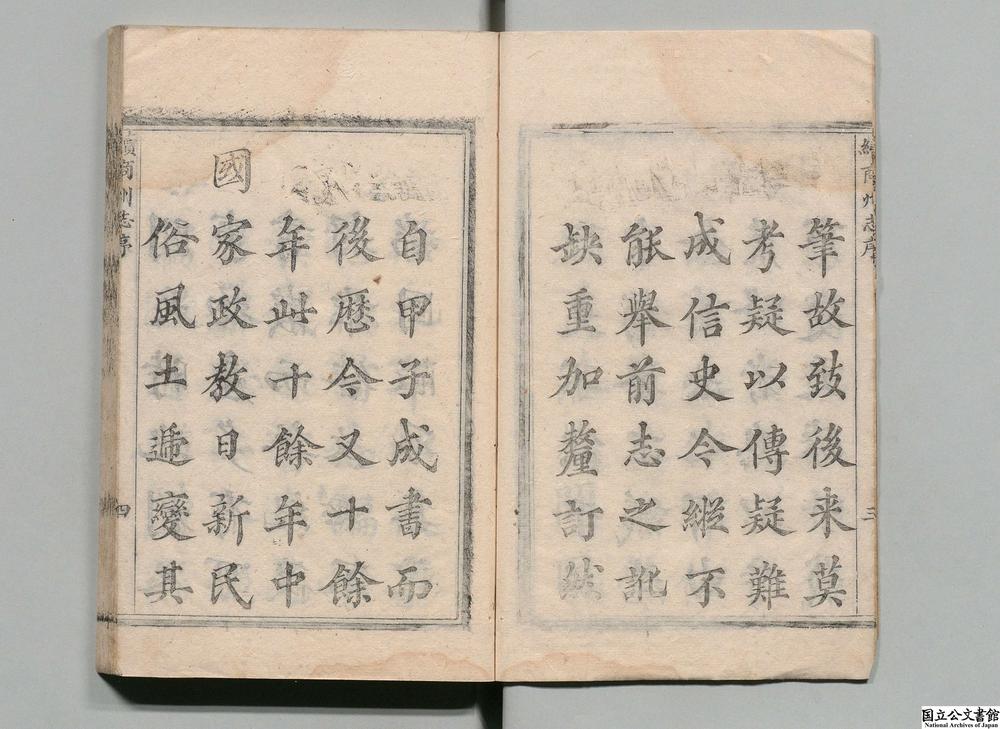 續商州志序
三
筆故致後来莫
考疑以傳疑難
成信史今縱不
能舉前志之訛
缺重加釐訂然
自甲子成書而
後歷今又十餘
年此十餘年中
國
家政教日新民
俗風土遞變其
續商州志序
四
国立公文書館
National Archives of Japan